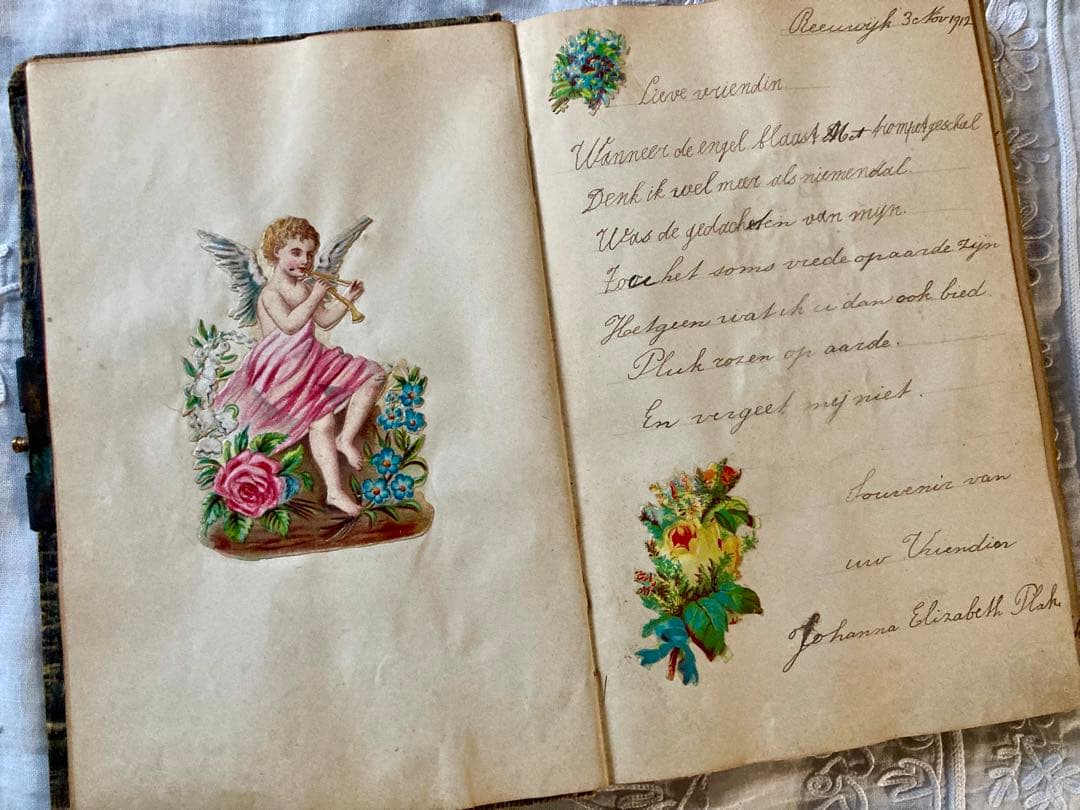 Reeuwijk 3 Nov 1912
Lieve vriendin
Wanneer de engel blaast Met trompetgeschal
Denk ik wel meer als niemendal.
Was de gedachten van mijn.
Zou het soms vrede opaarde zijn
Hetgeen wat ik u dan ook bied.
Pluk rozen op aarde.
En vergeet mij niet.
Souvenir van
uw Vriendin
Johanna Elizabeth Plak.